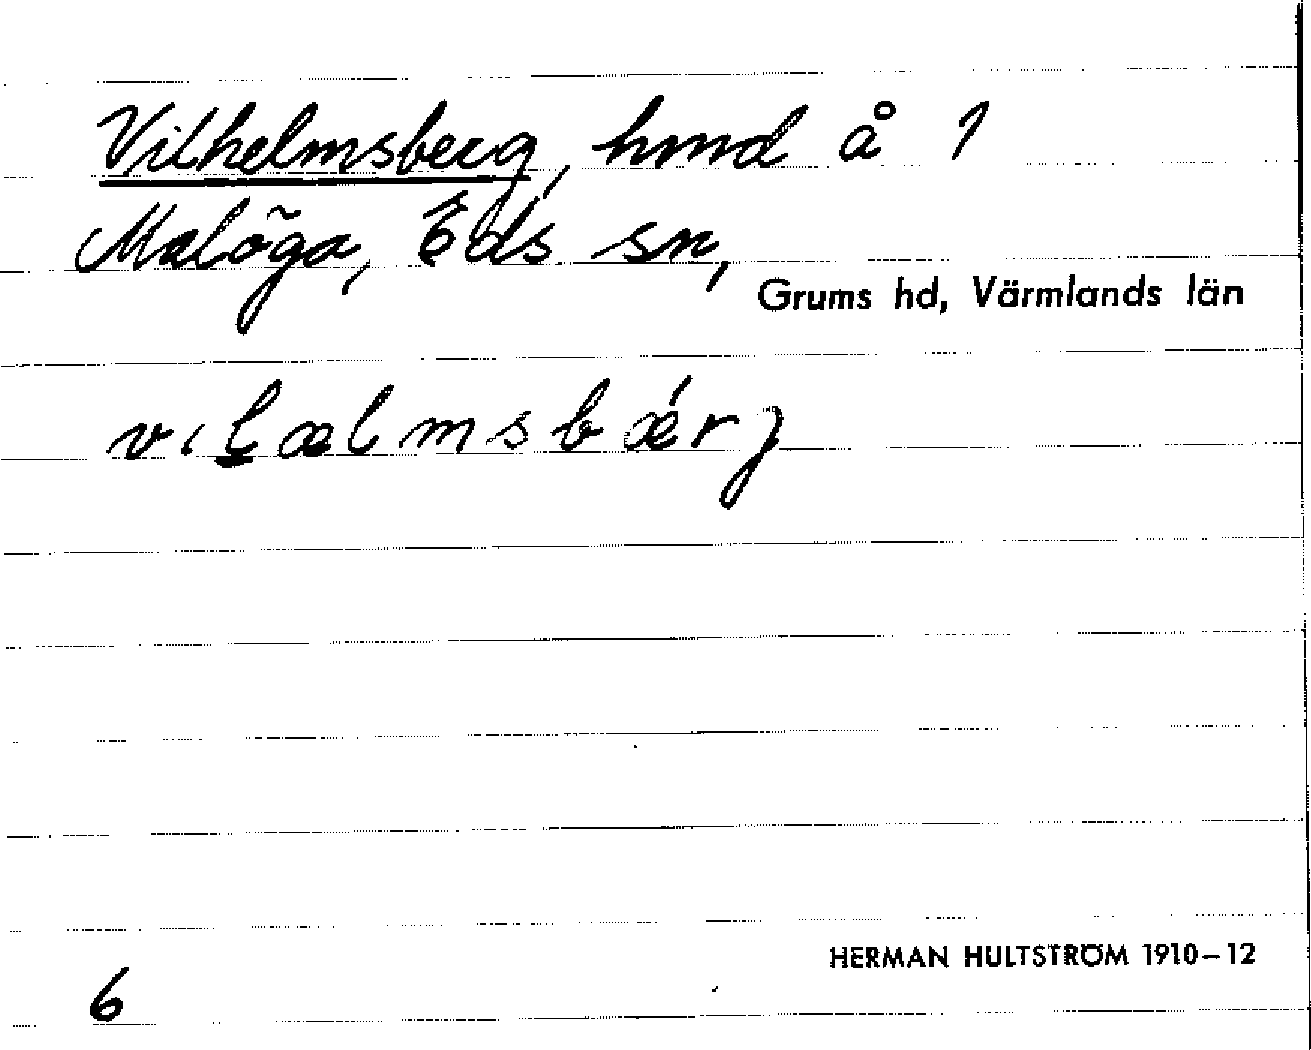 Vilhelmsberg, hmd å 1
Malöga, Eds sn,
Grums hd, Värmlands län
vilælmsbǽrj
6
HERMAN HULTSTRÖM 1910–12